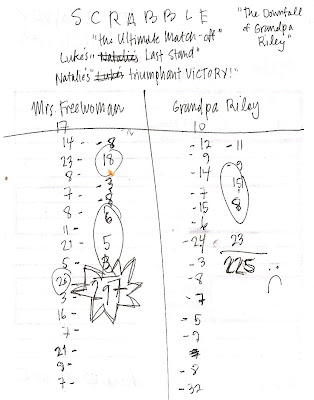 SCRABBLE
"The Downfall of Grandpa Riley"
"the Ultimate Match-off"
Luke's "Natalie's Last Stand"
Natalie's "Luke's triumphant VICTORY!"
Mrs. Freewoman Grandpa Riley
17 10
14 - 8 - 12 - 11
23 - 18 - 9
8 - - 14 - 9
7 - - 7 15
8 - 6 - 15 8
11 - - 6
21 - 5 - 24 23
5 - 8 - 3 225
28 297 - 8
3 - - 7
16 -
7 - - 5
21 - - 9
9 - - 8
7 - - 32